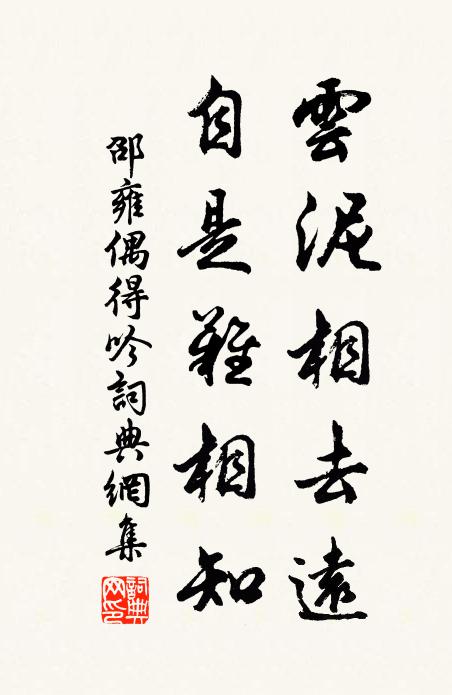 雲泥相去遠
自是難相知
邵雍偶得吟詞典網集
詞典網印